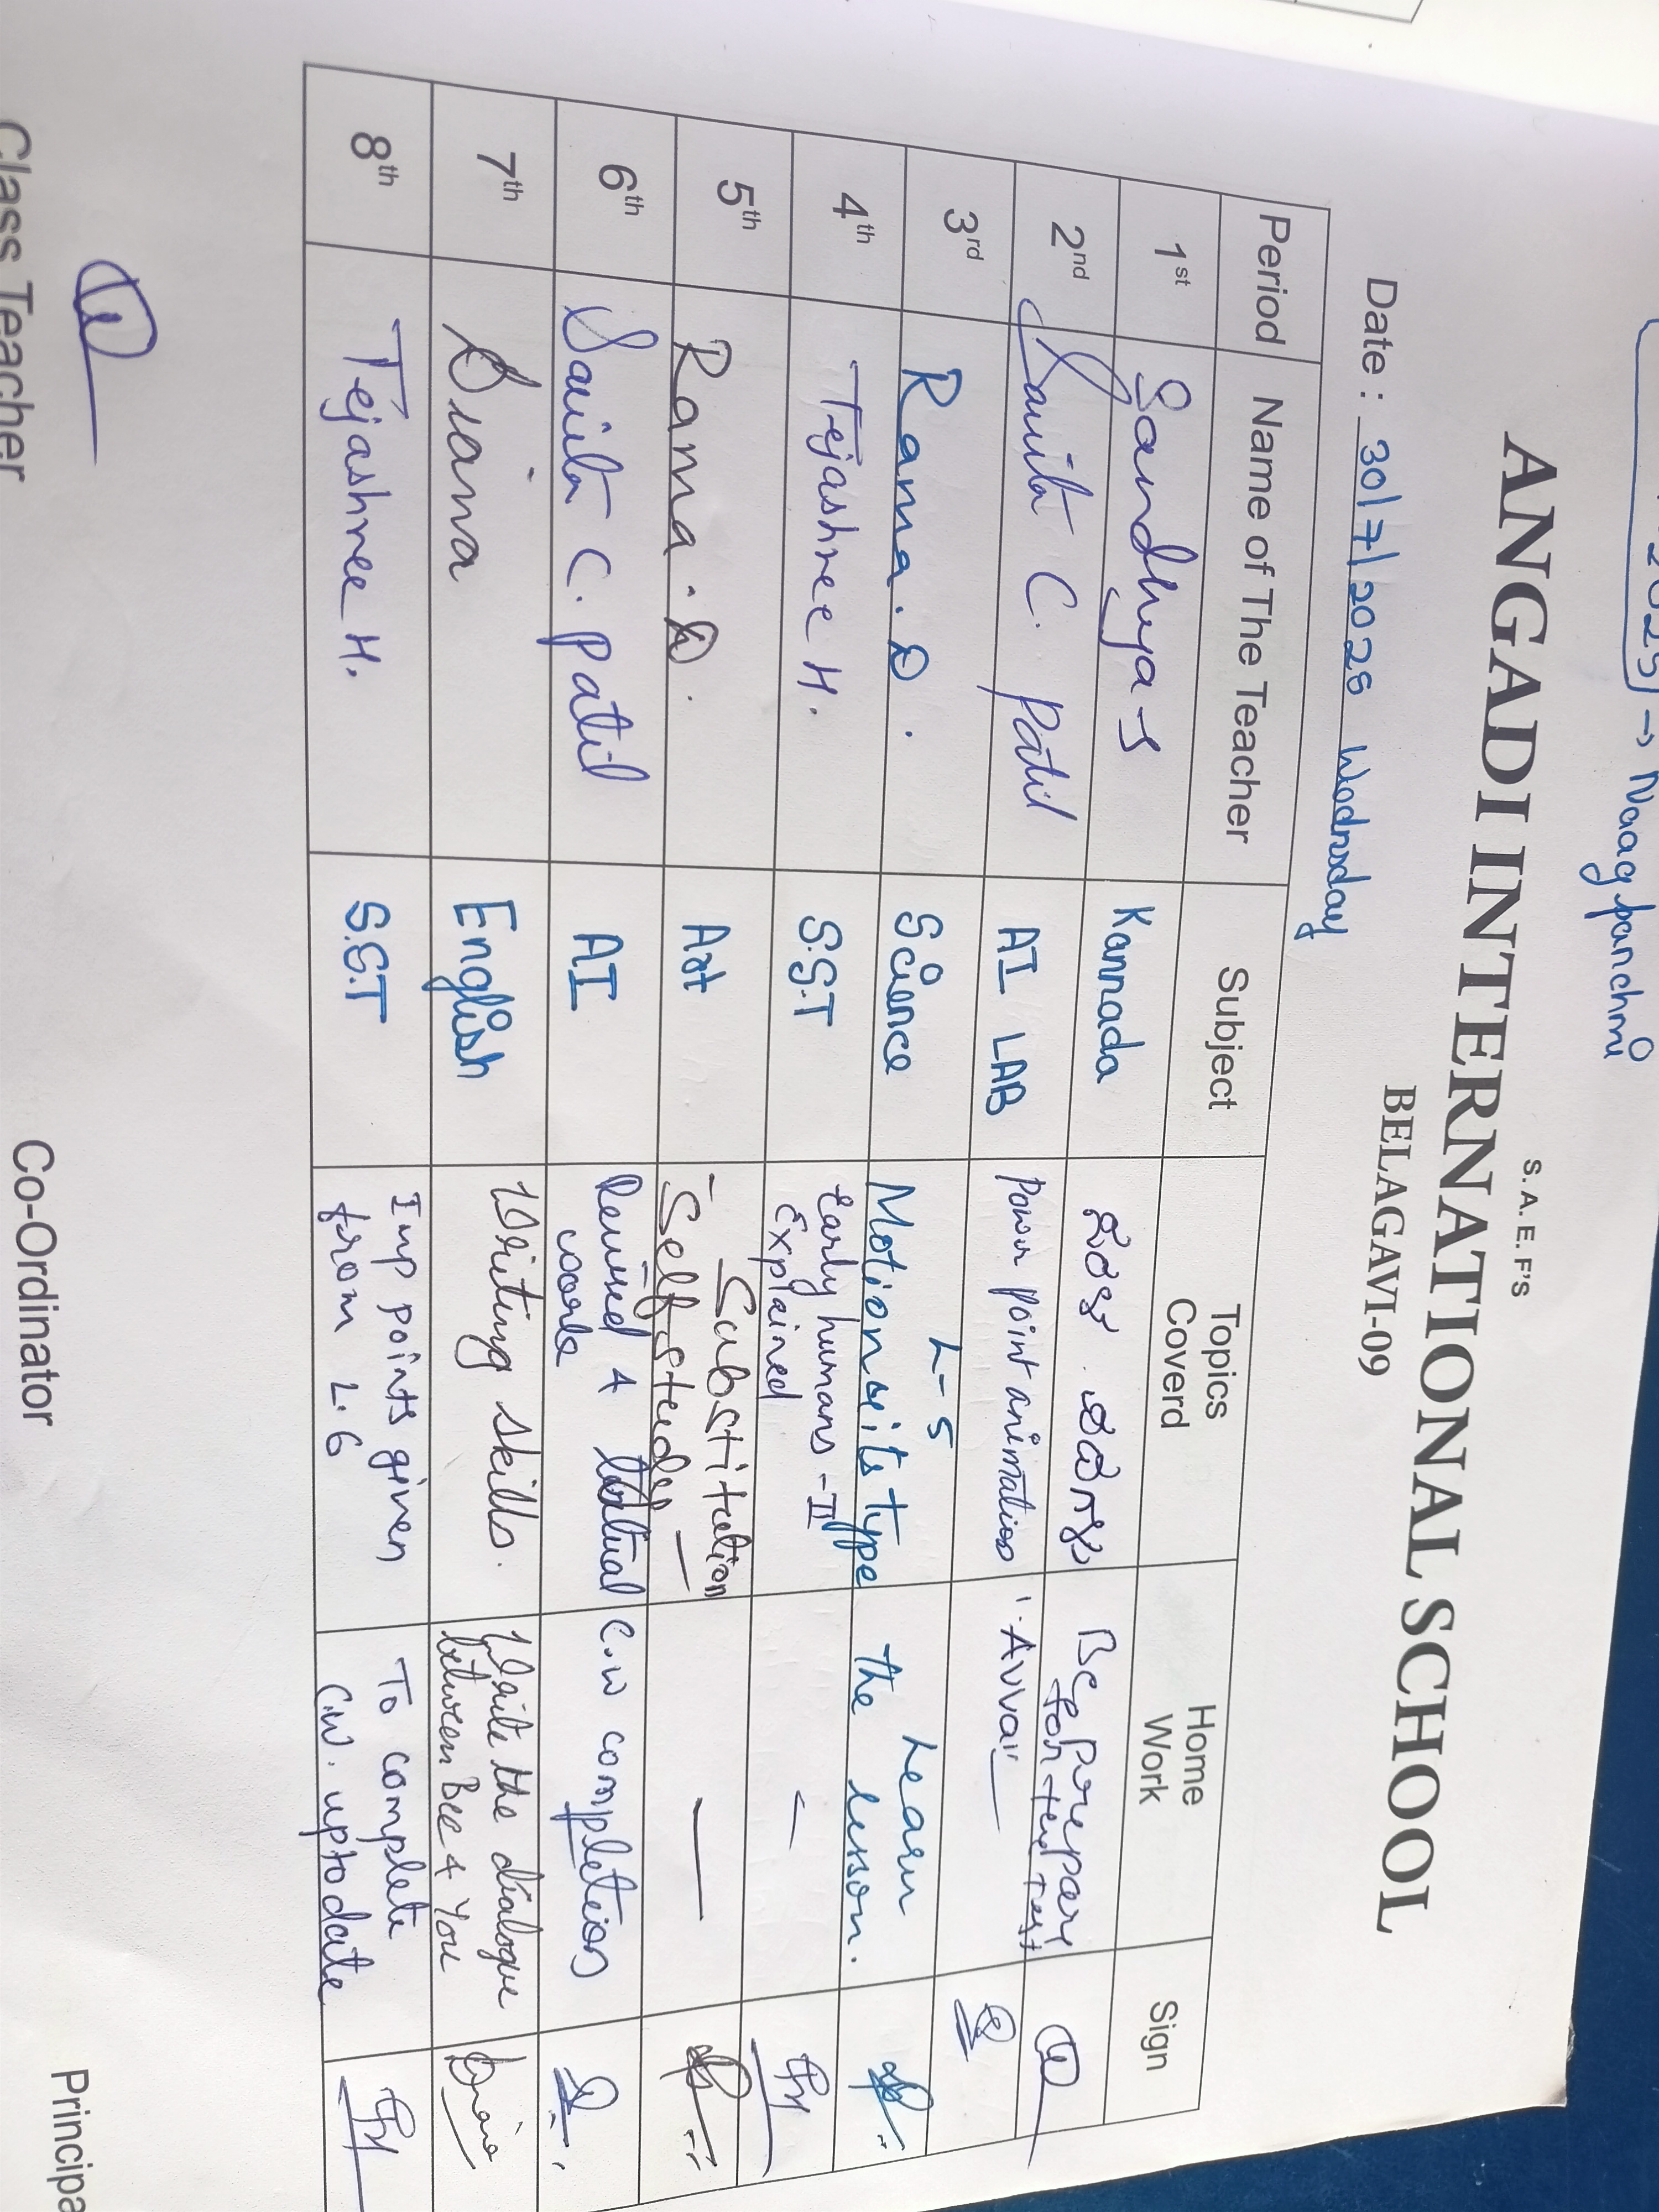 2025 → Naag panchmi
S. A. E. F'S
ANGADI INTERNATIONAL SCHOOL
BELAGAVI-09
Date : 30/7/2025 Wednesday
Period Name of The Teacher Subject Topics Coverd Home Work Sign
1st Sandhya S Kannada Be prepare for the test "Avva"
2nd Savita C. Patil AI LAB Power point animation
3rd Rama. D. Science L-5 Motion & its type Learn the lesson.
4th Tejashree H. S.S.T Early humans - II Explained -
5th Rama. D. Art - Substitution Self study - —
6th Savita C. Patil AI Revised & work C.W completion
7th Diana English Writing skills. Write the dialogue between Bee & You
8th Tejashree H. S.S.T Imp points given from L.6 To complete C.W. upto date
Class Teacher Co-Ordinator Principa